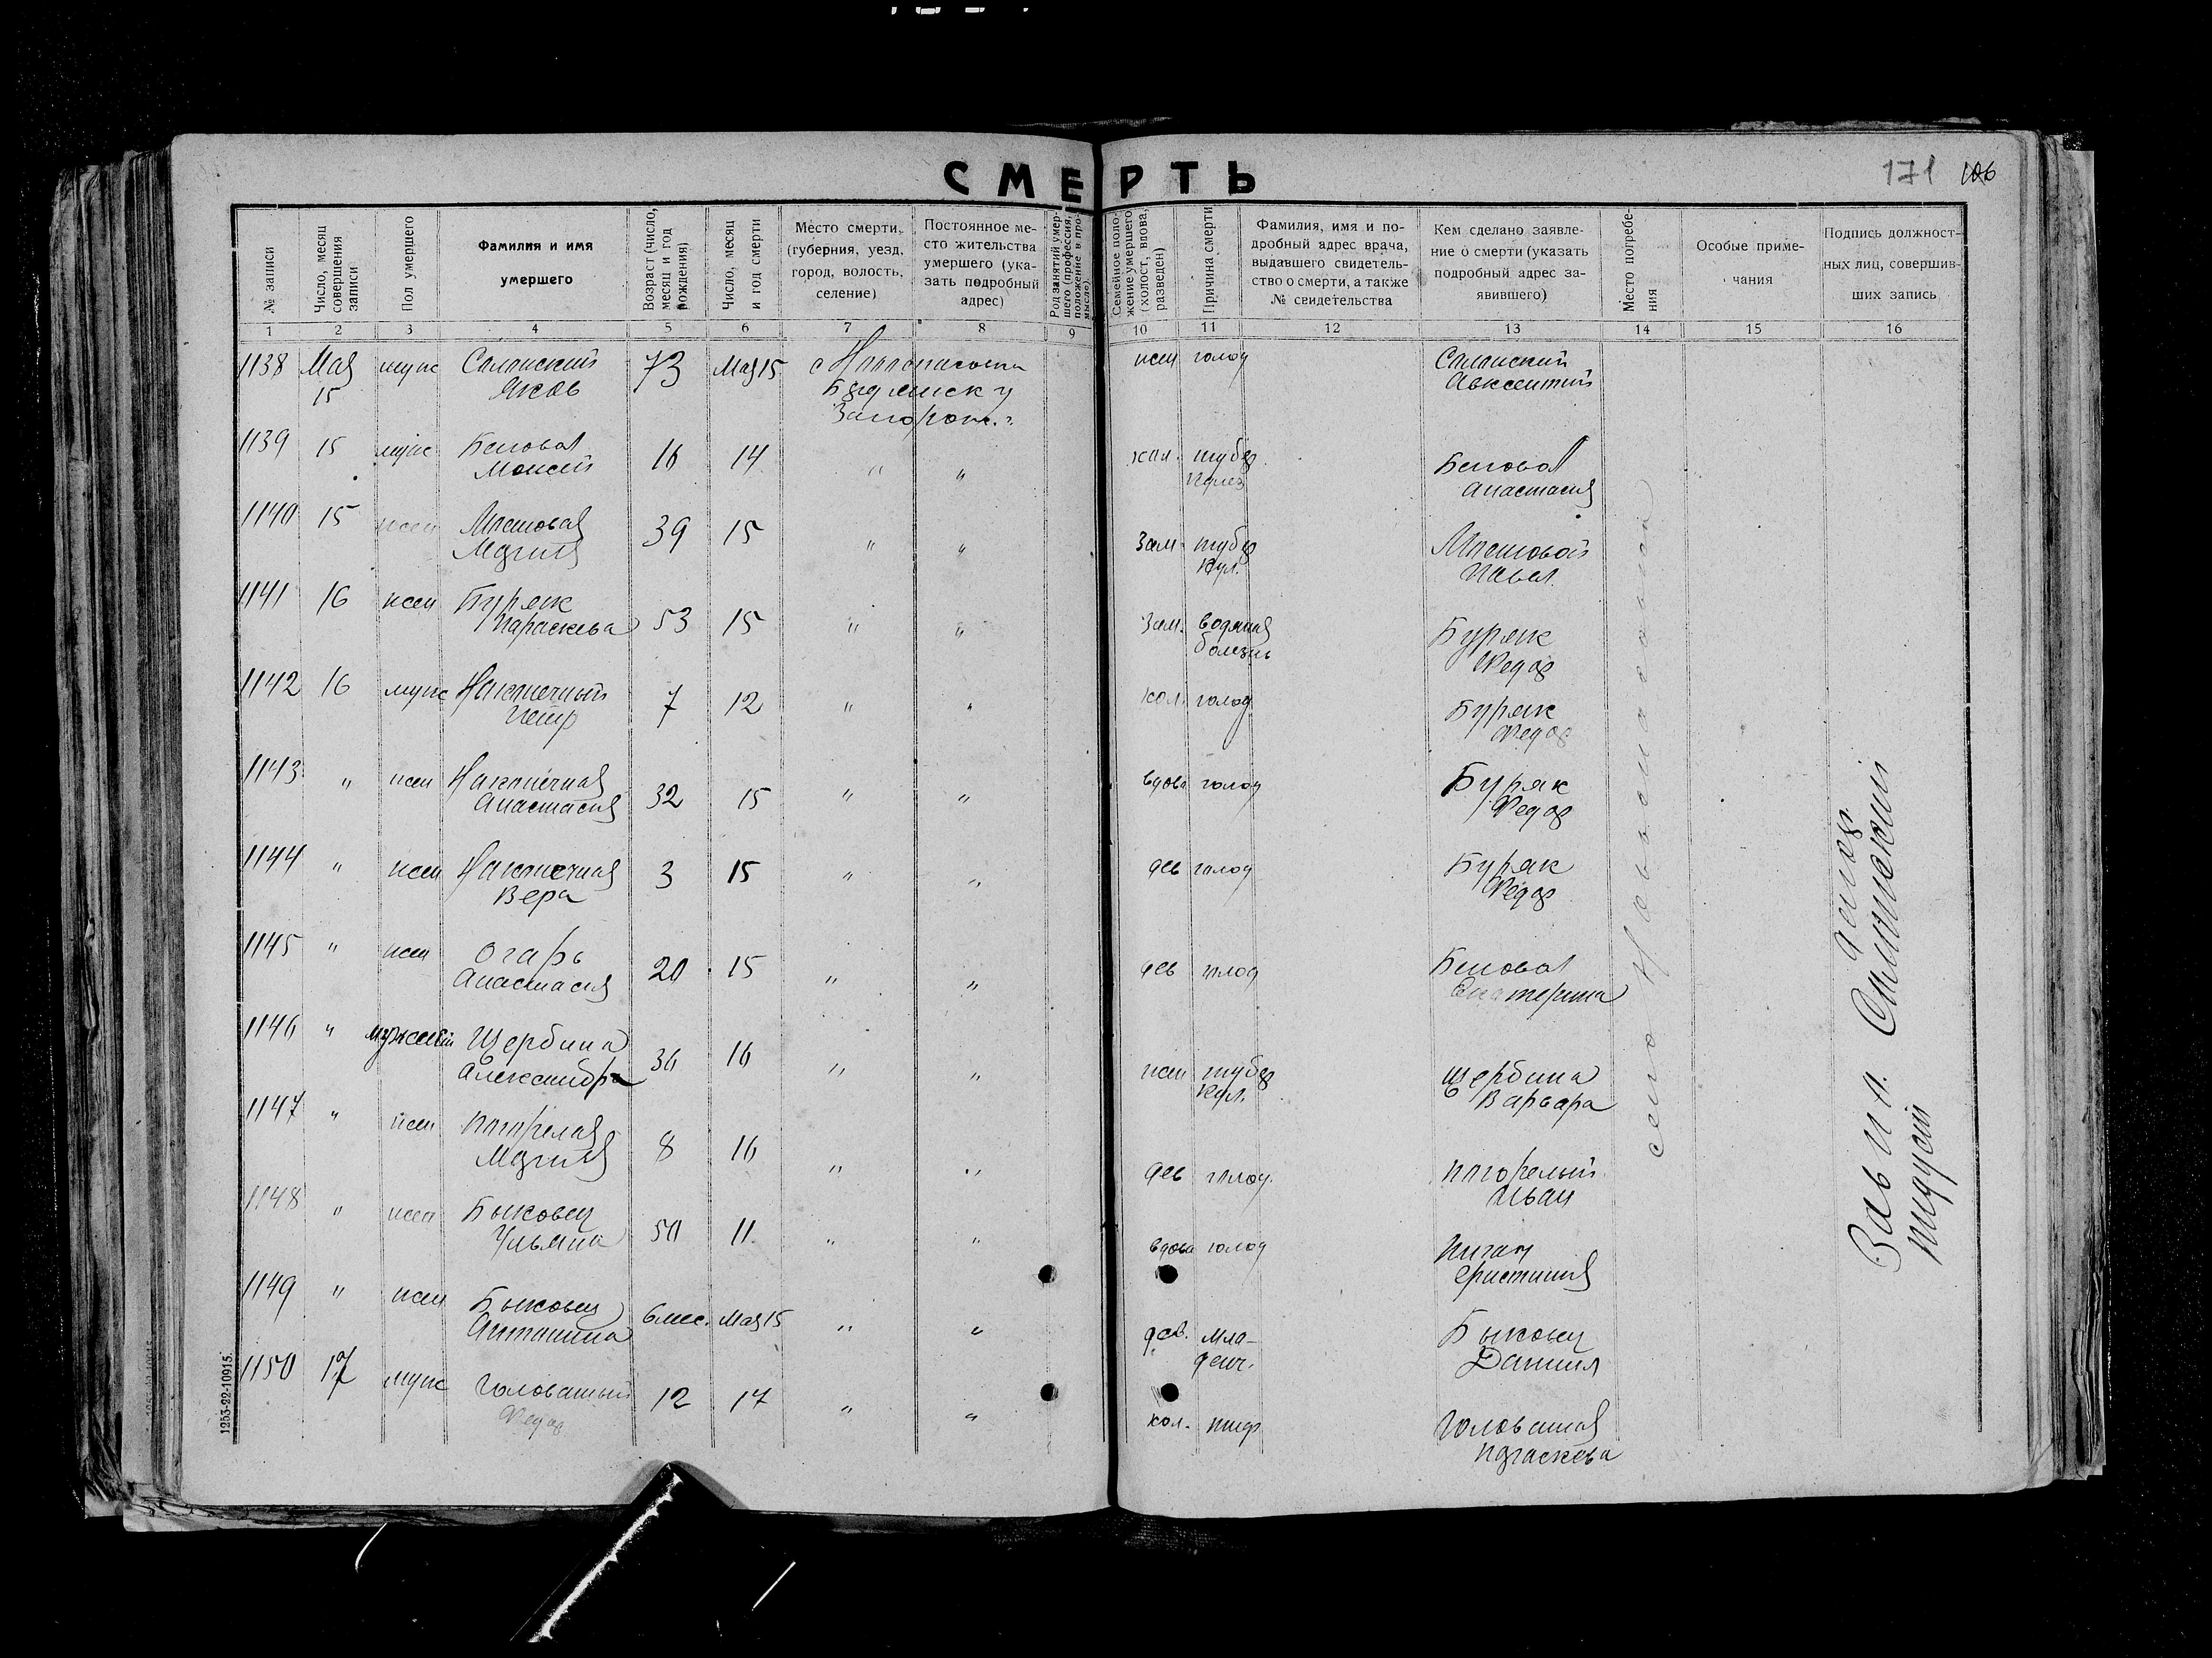 СМЕРТЬ
171 106
№ записи
Число, месяц совершения записи
Пол умершего
Фамилия и имя умершего
Возраст (число, месяц и год рождения)
Число, месяц и год смерти
Место смерти, (губерния, уезд, город, волость, селение)
Постоянное место жительства умершего (указать подробный адрес)
Род занятий умершего (профессия, положение в промысле)
Семейное положение умершего (холост, вдова, разведен)
Причина смерти
Фамилия, имя и подробный адрес врача, выдавшего свидетельство о смерти, а также № свидетельства
Кем сделано заявление о смерти (указать подробный адрес заявившего)
Место погребения
Особые примечания
Подпись должностных лиц, совершивших запись
1 2 3 4 5 6 7 8 9 10 11 12 13 14 15 16
1138 Мая 15 муж Яков 73 Мая 15 жен голод Авксентий
1139 15 муж Моисей 16 14 " " хол. тубер Анастасия
1140 15 жен Мария 39 15 " " зам. тубер кул. Павел
1141 16 жен Буряк Параскева 53 15 " " зам. водяная болезнь Буряк Федор
1142 16 муж Наконечный Петр 7 12 " " хол. голод Буряк Федор
1143 " жен Наконечная Анастасия 32 15 " " вдова голод Буряк Федор
1144 " жен Наконечная Вера 3 15 " " дев голод Буряк Федор
1145 " жен Огарь Анастасия 20 15 " " дев голод Екатерина
1146 " Щербина Александра 36 16 " " жен тубер кул. Щербина Варвара
1147 " жен Погорелая Мария 8 16 " " дев голод. Погорелый Иван
1148 " жен Быковец Ульяна 50 11 " " вдова голод
1149 " жен Быковец Антонина 6 мес. Мая 15 " " дев. Мла-денч. Быковец Даниил
1150 17 муж Головатый Федор 12 17 " " хол. тиф Головатая Параскева
село
1253-22-10915.